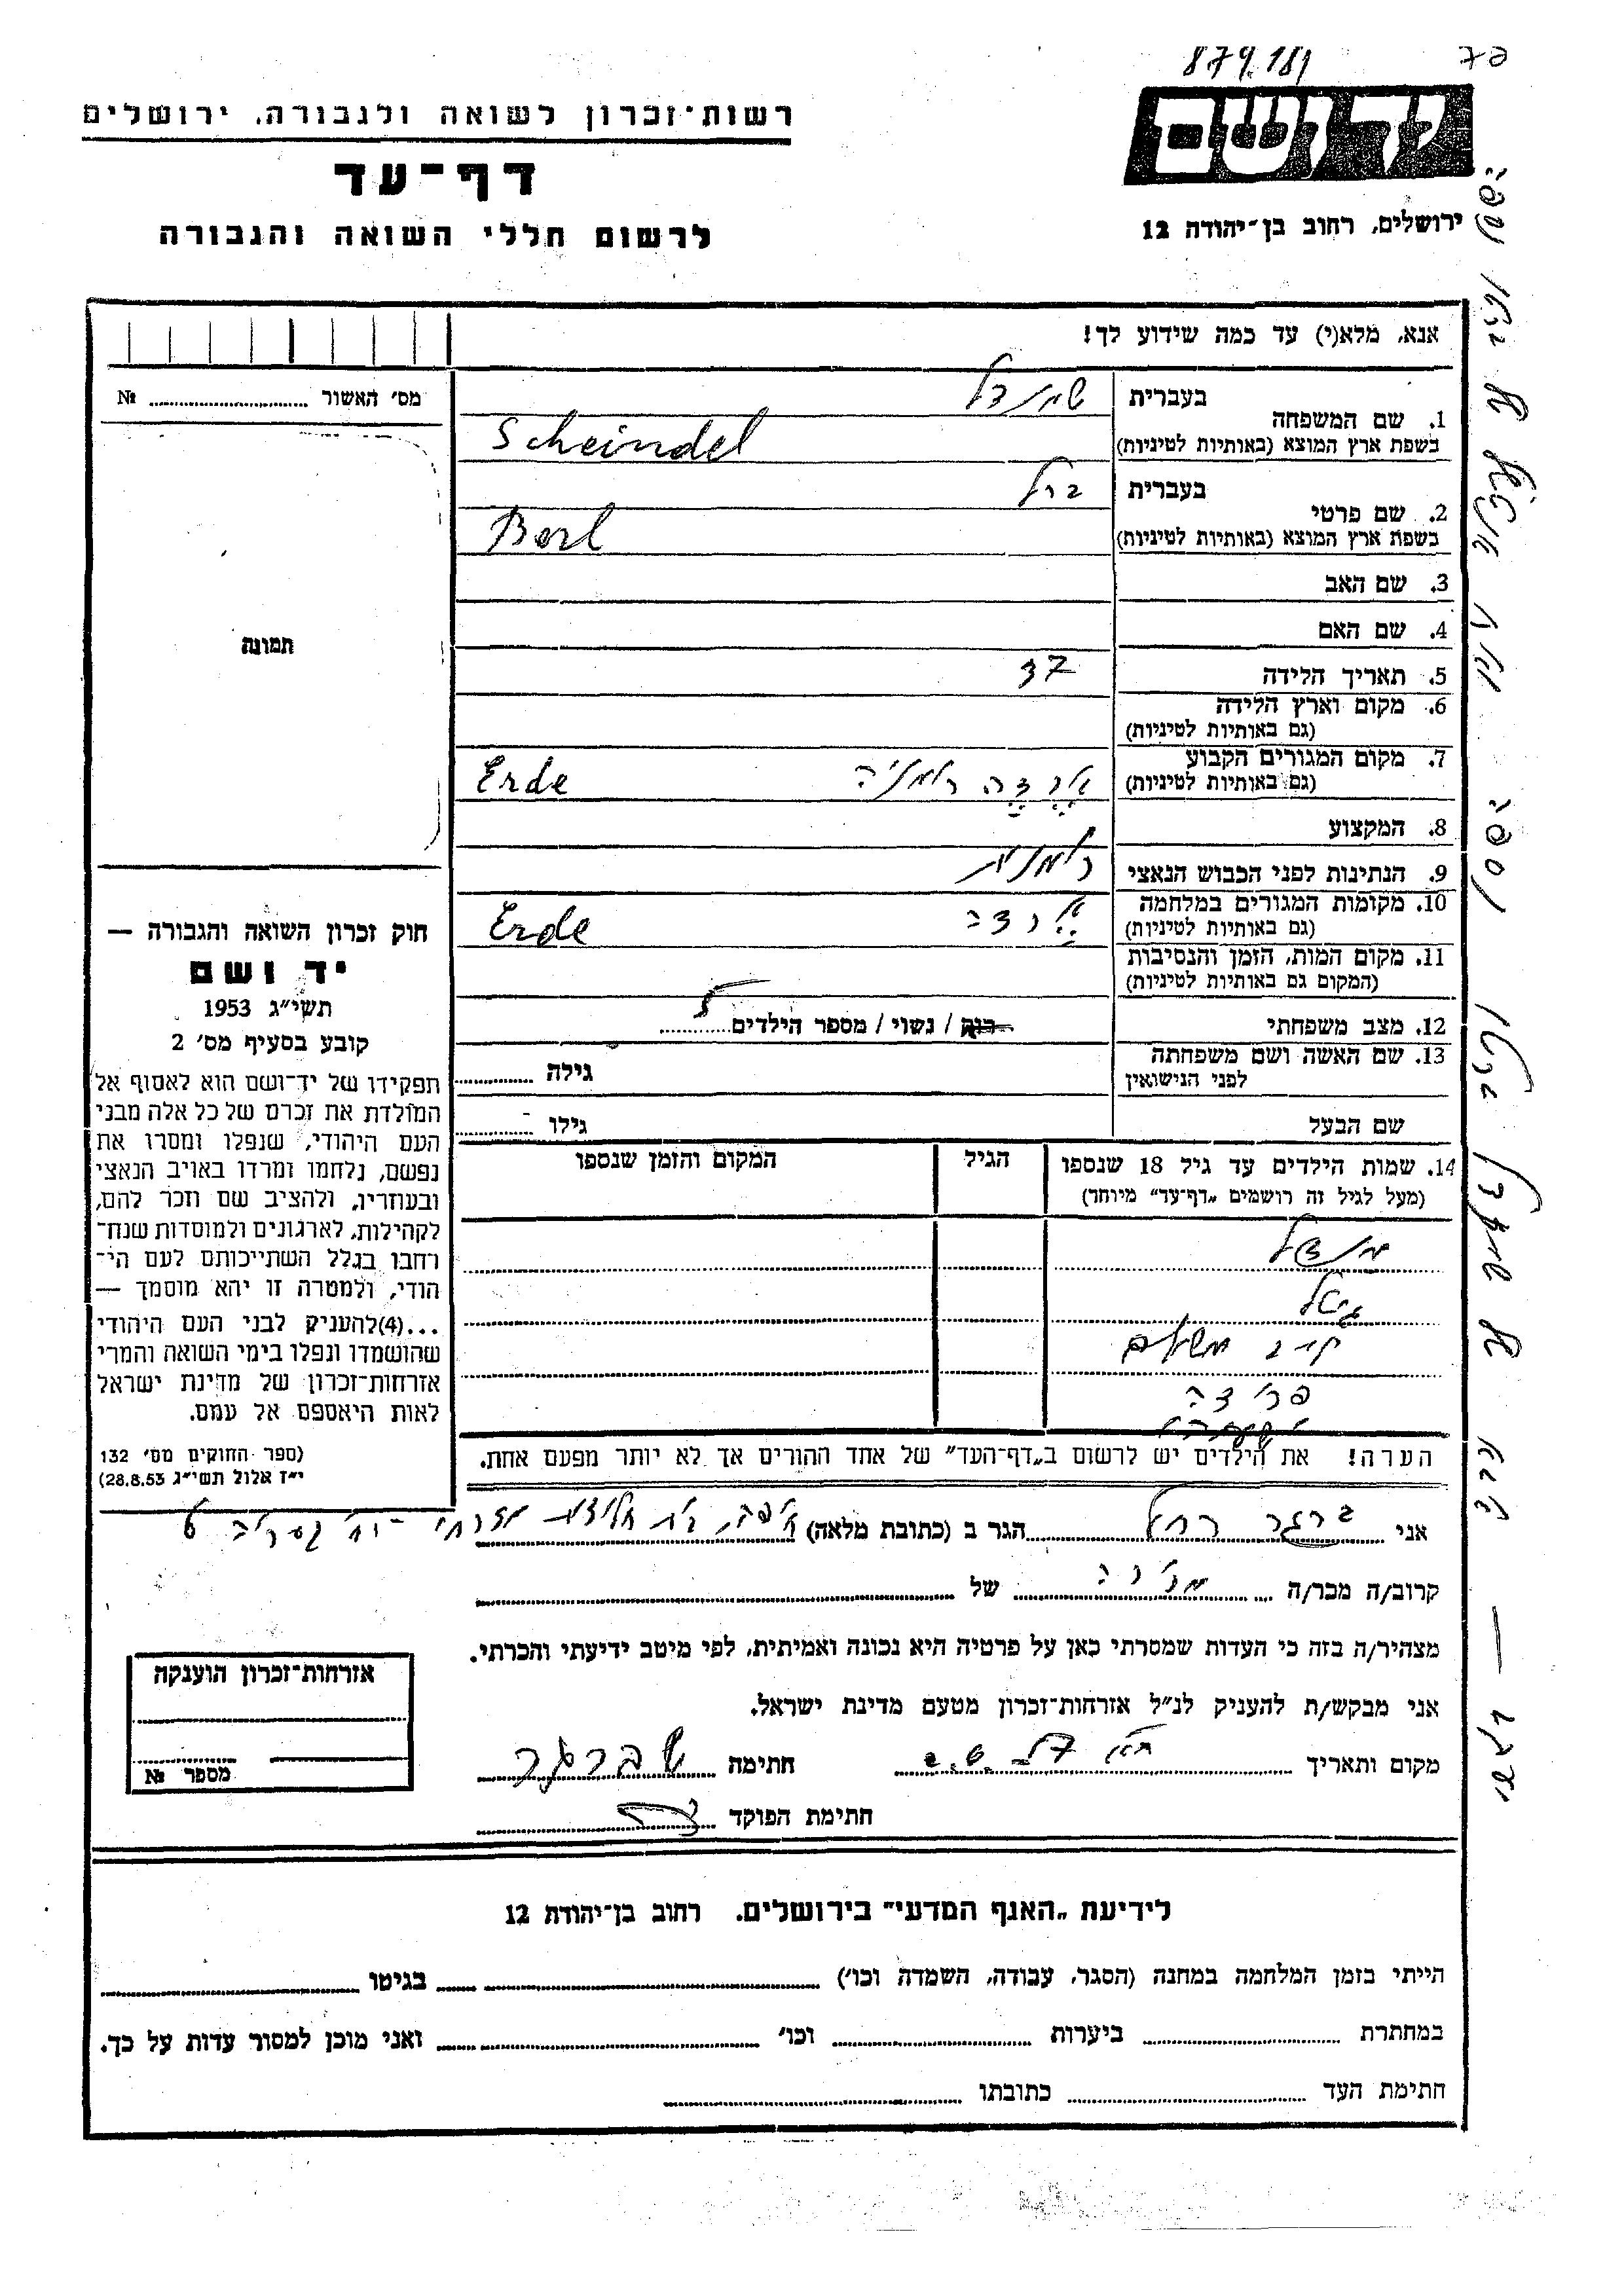 879.181
רשות־זכרון לשואה ולגבורה, ירושלים
יד ושם
דף־עד
לרשום חללי השואה והגבורה
ירושלים, רחוב בן־יהודה 12
אנא, מלא(י) עד כמה שידוע לך!
מס׳ האשור № 
תמונה
1. שם המשפחה
בעברית שיינדל
בשפת ארץ המוצא (באותיות לטיניות) Scheindel
2. שם פרטי
בעברית ברל
בשפת ארץ המוצא (באותיות לטיניות) Berl
3. שם האב
4. שם האם
5. תאריך הלידה 37
6. מקום וארץ הלידה
(גם באותיות לטיניות)
7. מקום המגורים הקבוע ארדה רומניה Erde
(גם באותיות לטיניות)
8. המקצוע
9. הנתינות לפני הכבוש הנאצי רומנית
10. מקומות המגורים במלחמה ארדה Erde
(גם באותיות לטיניות)
11. מקום המות, הזמן והנסיבות
(המקום גם באותיות לטיניות)
12. מצב משפחתי רווק / נשוי / מספר הילדים 5
13. שם האשה ושם משפחתה
לפני הנישואין גילה
שם הבעל גילו
14. שמות הילדים עד גיל 18 שנספו הגיל המקום והזמן שנספו
(מעל לגיל זה רושמים „דף־עד” מיוחד)
מנדל
פרידה
הערה! את הילדים יש לרשום ב„דף־העד” של אחד ההורים אך לא יותר מפעם אחת.
חוק זכרון השואה והגבורה —
יד ושם
תשי״ג 1953
קובע בסעיף מס׳ 2
תפקידו של יד־ושם הוא לאסוף אל
המולדת את זכרם של כל אלה מבני
העם היהודי, שנפלו ומסרו את
נפשם, נלחמו ומרדו באויב הנאצי
ובעוזריו, ולהציב שם וזכר להם,
לקהילות, לארגונים ולמוסדות שנח־
רבו בגלל השתייכותם לעם הי־
הודי, ולמטרה זו יהא מוסמך —
...(4) להעניק לבני העם היהודי
שהושמדו ונפלו בימי השואה והמרי
אזרחות־זכרון של מדינת ישראל
לאות היאספם אל עמם.
(ספר החוקים מס׳ 132
י״ז אלול תשי״ג 28.8.53)
אני ברגר רחל הגר ב (כתובת מלאה) חיפה
קרוב/ה מכר/ה מכרה של
מצהיר/ה בזה כי העדות שמסרתי כאן על פרטיה היא נכונה ואמיתית, לפי מיטב ידיעתי והכרתי.
אני מבקש/ת להעניק לנ״ל אזרחות־זכרון מטעם מדינת ישראל.
מקום ותאריך חתימה ברגר
חתימת הפוקד
אזרחות־זכרון הוענקה
מספר №
לידיעת „האגף המדעי” בירושלים. רחוב בן־יהודה 12
הייתי בזמן המלחמה במחנה (הסגר, עבודה, השמדה וכו׳) בגיטו
במחתרת ביערות וכו׳ ואני מוכן למסור עדות על כך.
חתימת העד כתובתו